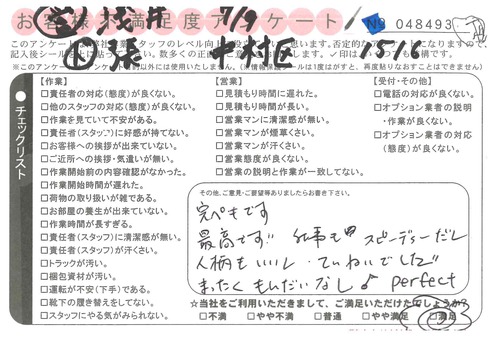 お客様満足度アンケート
営 浅井 7/9
No 048493
作 張 中村区 15/16
チェックリスト
【作業】
□責任者の対応(態度)が良くない。
□他のスタッフの対応(態度)が良くない。
□作業を見ていて不安がある。
□責任者(スタッフ)に好感が持てない。
□お客様への挨拶が出来ていない。
□ご近所への挨拶・気遣いが無い。
□作業開始前の内容確認がなかった。
□作業開始時間が遅れた。
□荷物の取り扱いが雑である。
□お部屋の養生が出来ていない。
□作業時間が長すぎる。
□責任者(スタッフ)に清潔感が無い。
□責任者(スタッフ)が汗くさい。
□トラックが汚い。
□梱包資材が汚い。
□運転が不安(下手)である。
□靴下の履き替えをしてない。
□スタッフにやる気がみられない。
【営業】
□見積もり時間に遅れた。
□見積もり時間が長い。
□営業マンに清潔感が無い。
□営業マンが煙草くさい。
□営業マンが汗くさい。
□営業態度が良くない。
□営業の説明と作業が一致してない。
【受付・その他】
□電話の対応が良くない。
□オプション業者の説明
・作業が良くない。
□オプション業者の対応
(態度)が良くない。
その他、ご意見・ご要望等ありましたらお書き下さい。
完ペキです
最高です!! 仕事も スピーディーだし
人柄もいいし ていねいでした
まったくもんだいなし♪ perfect
☆当社をご利用いただきまして、ご満足いただけたでしょうか?
□不満 □やや不満 □普通 □やや満足 □満足